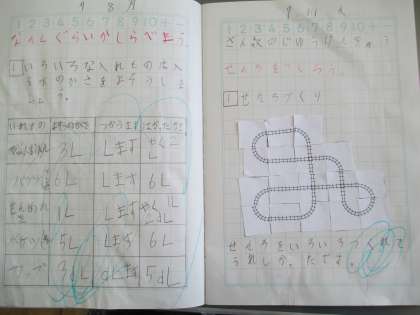 9 8 月
1 2 3 4 5 6 7 8 9 10 + −
なんLぐらいかしらべよう。
1 いろいろな入れものに入
る水のかさをよそうしよ
う。
いれもの よそうのかさ つかうます はかったかさ
3L Lます
バケツ 6L Lます 6L
せんめんき 1L Lます
5L Lます 6L
カップ 3dL dLます 5dL
9 11 火
1 2 3 4 5 6 7 8 9 10 + −
さんすうのじゆうけんきゅう
せんろをつくろう。
1 せんろづくり
せんろをいろいろつくれて
うれしかったです。